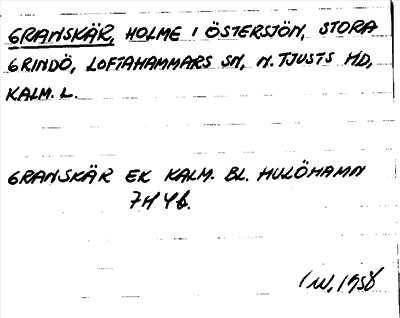 GRANSKÄR, HOLME I ÖSTERSJÖN, STORA
GRINDÖ, LOFTAHAMMARS SN, N. TJUSTS HD,
KALM. L.
GRANSKÄR EK KALM. BL. HULÖHAMN
7H 4b.
IW, 1958